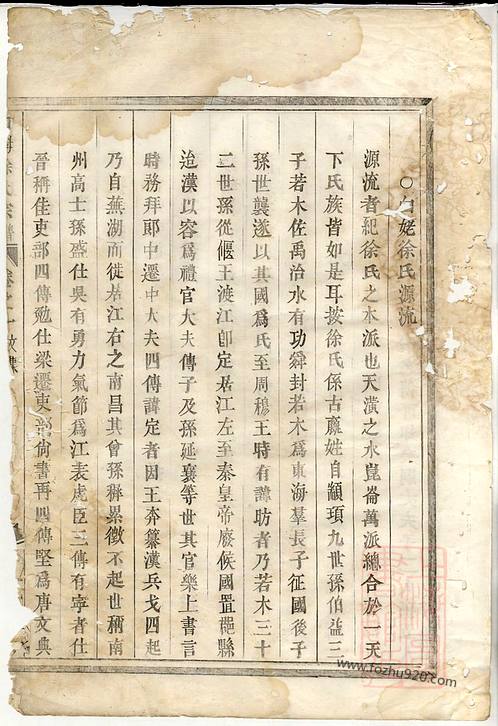 ○白姥徐氏源流
源流者紀徐氏之水派也天潢之水崑崙萬派總合於一天
下氏族皆如是耳按徐氏係古嬴姓自顓頊九世孫伯益三
子若木佐禹治水有功舜封若木為東海羣長子征國後子
孫世襲遂以其國為氏至周穆王時有諱昉者乃若木三十
二世孫從偃王渡江卽定居江左至秦皇帝廢候國置郡縣
迨漢以容為禮官大夫傳子及孫延襄等世其官樂上書言
時務拜郎中遷中大夫四傳諱定者因王莽纂漢兵戈四起
乃自蕪湖而徙居江右之南昌其曾孫穉累徵不起世稱南
州高士孫盛仕吳有勇力氣節為江表虎臣三傳有寧者仕
晉稱佳吏部四傳勉仕梁遷吏部尙書再四傳堅為唐文典
www.fozhu920.com